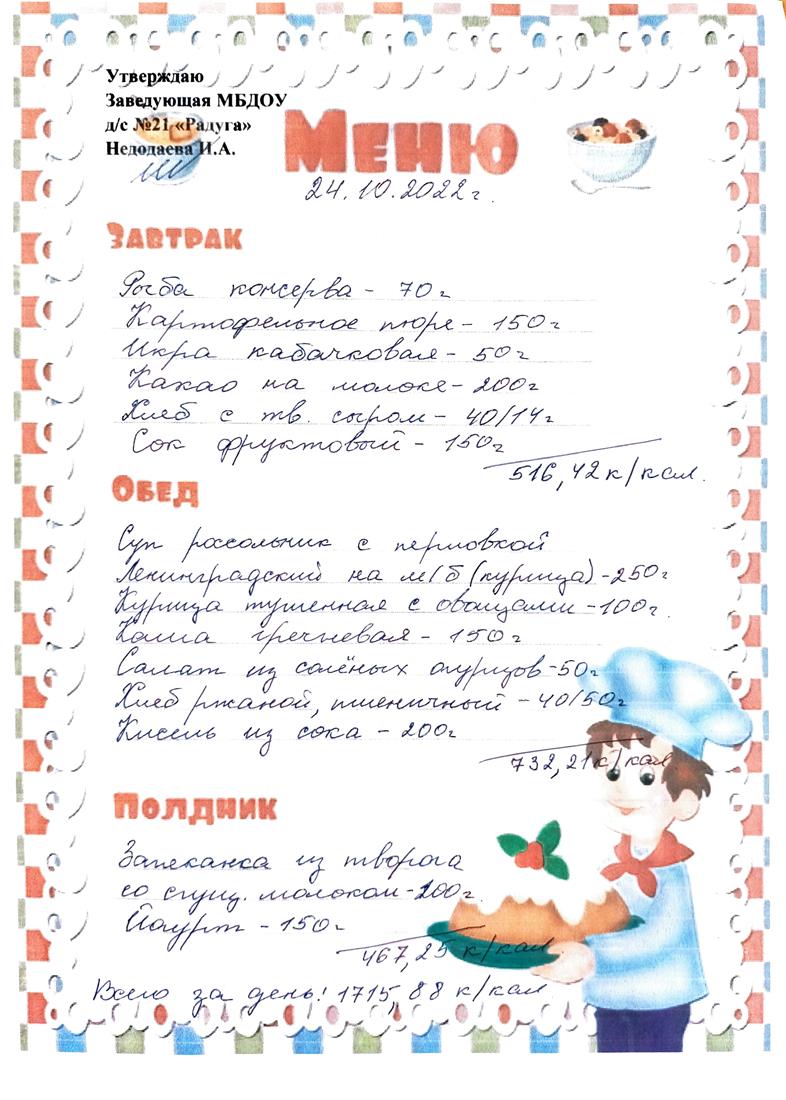 Утверждаю
Заведующая МБДОУ
д/с №21 «Радуга»
Недодаева И.А.
Меню
24.10.2022г.
Завтрак
Рыба консерва - 70г
Картофельное пюре - 150г
Икра кабачковая - 50г
Какао на молоке - 200г
Хлеб с тв. сыром - 40/14г
Сок фруктовый - 150г
516,42 к/кал.
Обед
Суп россольник с перловкой
Ленинградский на м/б (курица) - 250г
Курица тушенная с овощами - 100г.
Каша гречневая - 150г
Салат из солёных огурцов - 50г
Хлеб ржаной, пшеничный - 40/50г
Кисель из сока - 200г
732,21 к/кал
Полдник
Запеканка из творога
со сгущ. молоком - 200г.
Йогурт - 150г
467,25 к/кал
Всего за день! 1715,88 к/кал